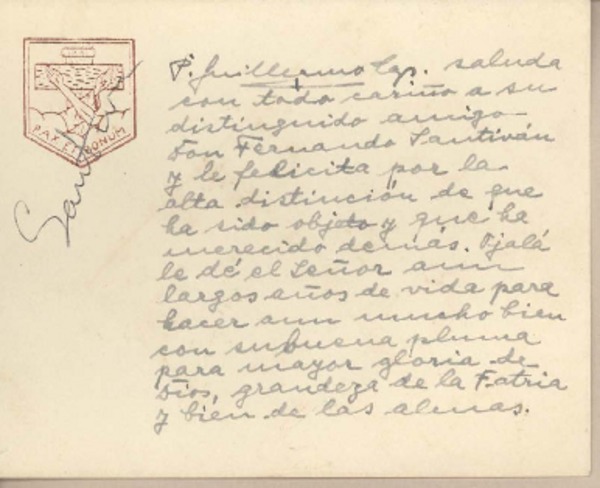 PAX ET BONUM
P. Guillermo Cap. saluda
con todo cariño a su
distinguido amigo
Don Fernando Santiván
y le felicita por la
alta distinción de que
ha sido objeto y que ha
merecido demás. Ojalá
le dé el Señor aun
largos años de vida para
hacer aun mucho bien
con su buena pluma
para mayor gloria de
Dios, grandeza de la Patria
y bien de las almas.